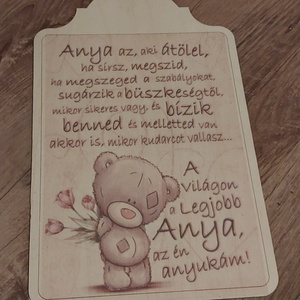 Anya az, aki átölel,
ha sírsz, megszid,
ha megszeged a szabályokat,
sugárzik a büszkeségtől,
mikor sikeres vagy, és bízik
benned és melletted van
akkor is, mikor kudarcot vallasz...
A
Világon
a Legjobb
Anya,
az én
anyukám!